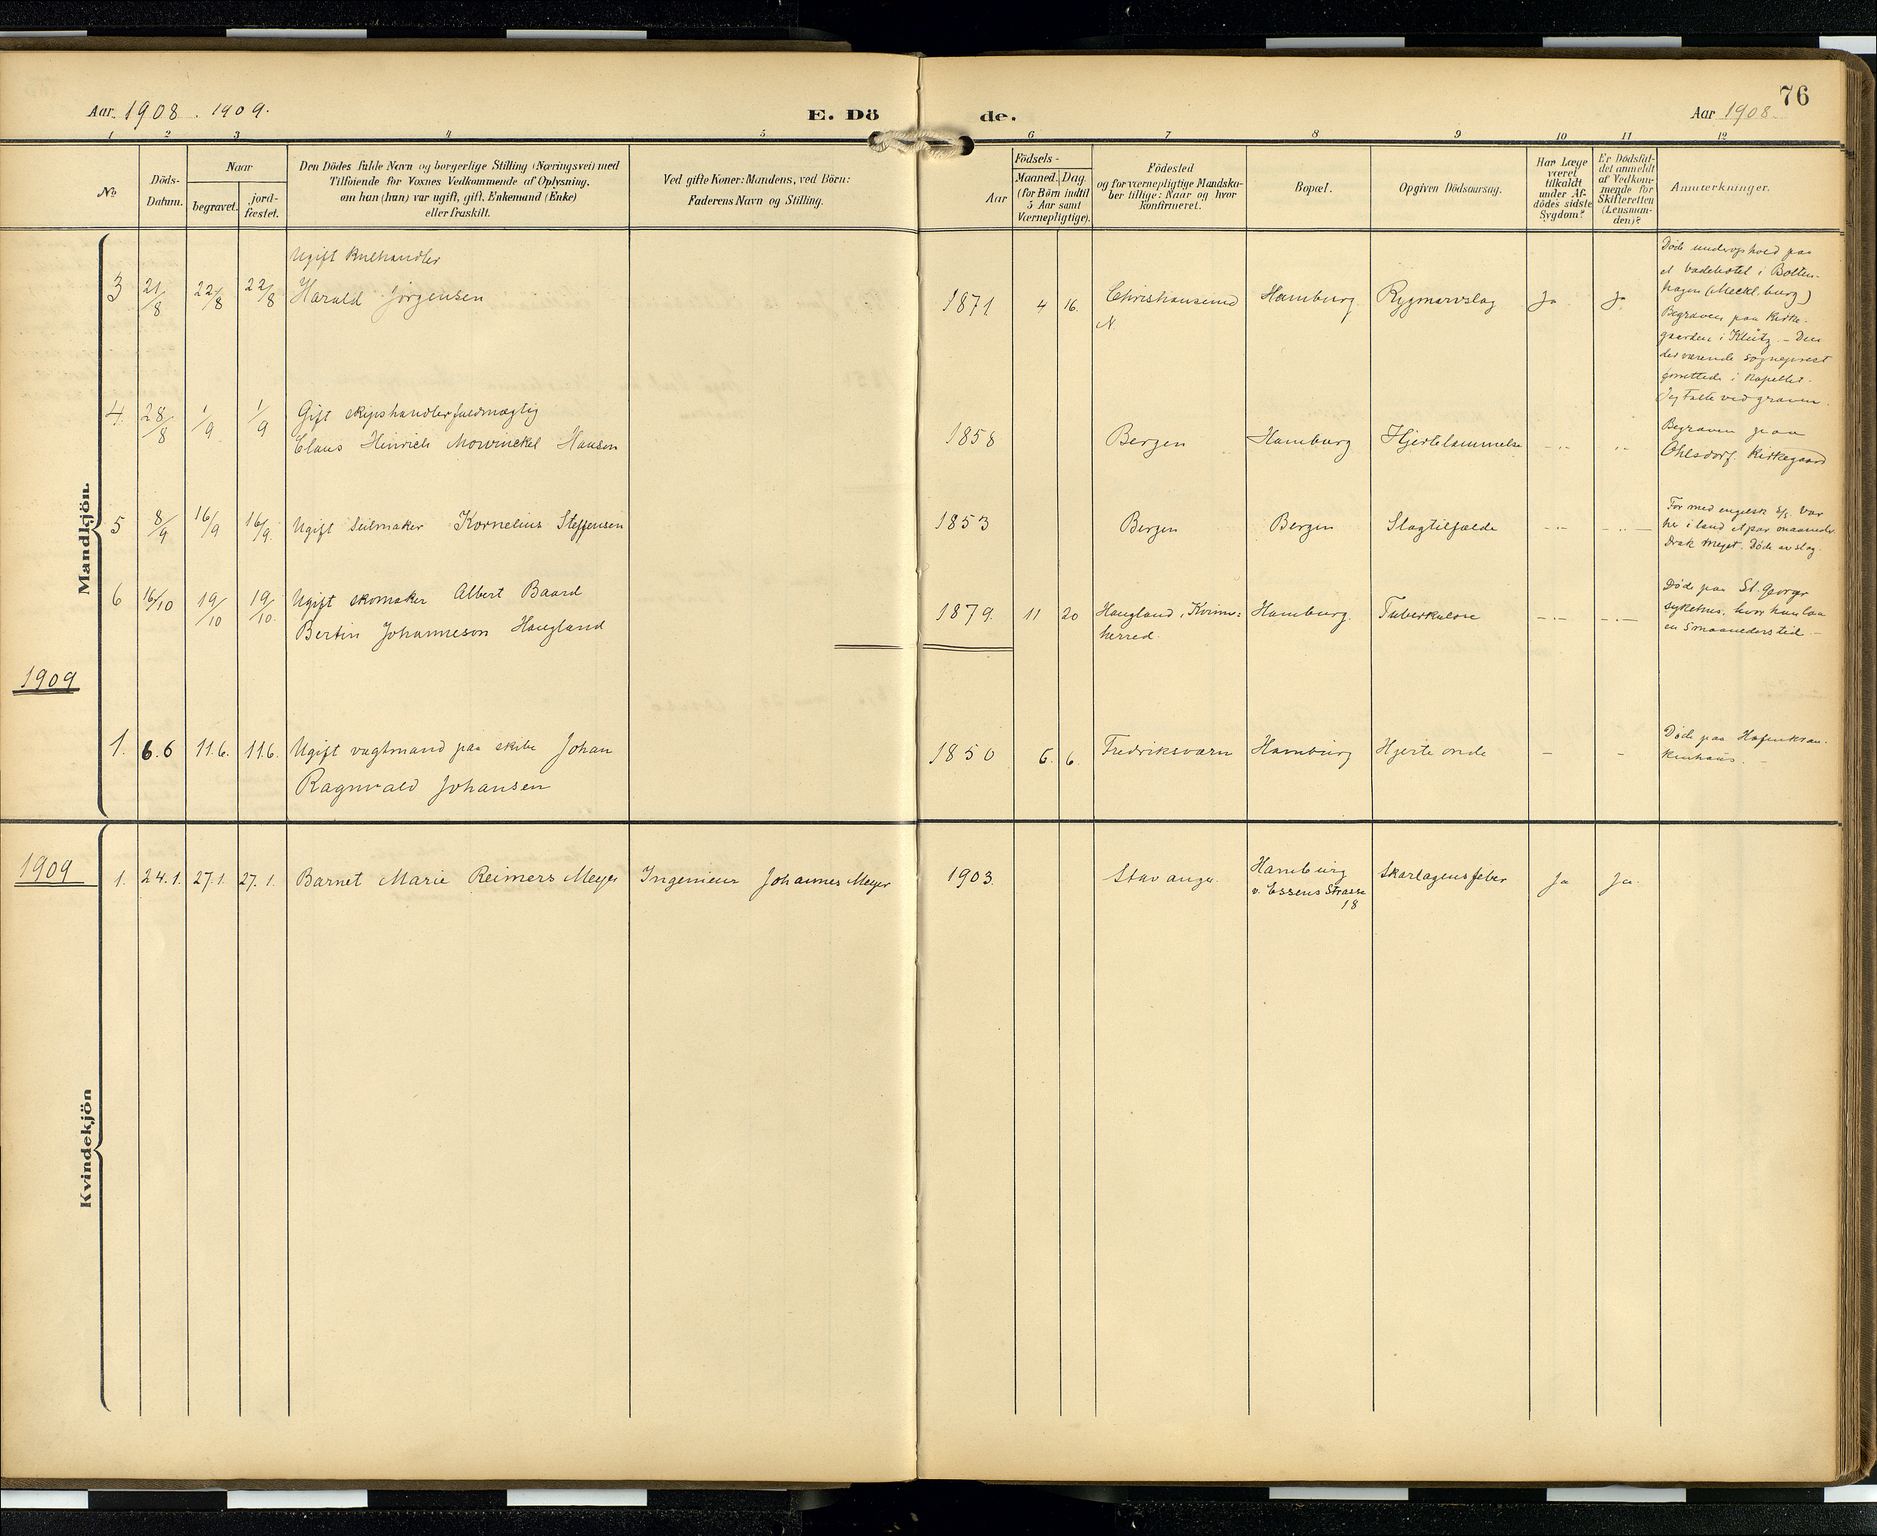 76
Aar 1908. 1909.
E. Dö
de.
Aar 1908
1 2 3 4 5 6 7 8 9 10 11 12
No
Döds-
Datum.
Naar
begravet.
jord-
fæstet.
Den Dödes fulde Navn og borgerlige Stilling (Næringsvei) med
Tilföiende for Voxnes Vedkommende af Oplysning,
om han (hun) var ugift, gift, Enkemand (Enke)
eller fraskilt.
Ved gifte Koner: Mandens, ved Börn:
Faderens Navn og Stilling.
Födsels-
Aar
Maaned.
Dag.
(for Börn indtil
5 Aar samt
Værnepligtige).
Födested
og for værnepligtige Mandska-
ber tillige: Naar og hvor
konfirmeret.
Bopæl.
Opgiven Dödsaarsag.
Har Læge
været
tilkaldt
under Af-
dödes sidste
Sygdom?
Er Dödsfal-
det anmeldt
af Vedkom-
mende for
Skifteretten
(Lensman-
den)?
Anmærkninger.
Mandkjön.
3
21/8
22/8
22/8
Ugift Kulhandler
Harald Jörgensen
1871
4
16.
Christiansund
N.
Hamburg
Rygmarvslag
Ja
Ja
Död under ophold paa
et badehotel i Bolten-
hagen (Meckl.burg)
Begraven paa Kirke-
gaarden i Klütz. - Den
derværende sogneprest
forrettede i Kapellet.
Jeg talte ved graven.
4.
28/8
1/9
1/9
Gift skipshandlerfuldmægtig
Claus Hinrich Mowinckel Hansen
1858
Bergen
Hamburg
Hjertelammelse
- .. -
.. -
Begraven paa
Ohlsdorf Kirkegaard
5
8/9
16/9
16/9
Ugift Seilmaker Kornelius Steffensen
1853
Bergen
Bergen
Slagtilfælde
- .. -
.. -
For med engelsk s/s. Var
her i land et par maaneder.
Drak meget. Døde av slag.
6
16/10
19/10
19/10
Ugift skomaker Albert Baard
Bertin Johanneson Haugland
1879.
11
20
Haugland, Kvinn=
herred.
Hamburg.
Tuberkulose
- .. -
- .. -
Døde paa St. Georgs
sykehus, hvor han laa
en 5 maaneders tid -
1909
1.
6.6
11.6.
11.6.
Ugift vagtmand paa skibe Johan
Ragnvald Johansen
1850
6.
6.
Fredriksværn
Hamburg
Hjerte onde
-
-
Døde paa Hafenkran-
kenhaus.
1909
Kvindekjön
1.
24.1.
27.1.
27.1.
Barnet Marie Reimers Meyer
Ingeniør Johannes Meyer
1903.
Stavanger
Hamburg
v. Essens Strasse
18
Skarlagensfeber
Ja
Ja.